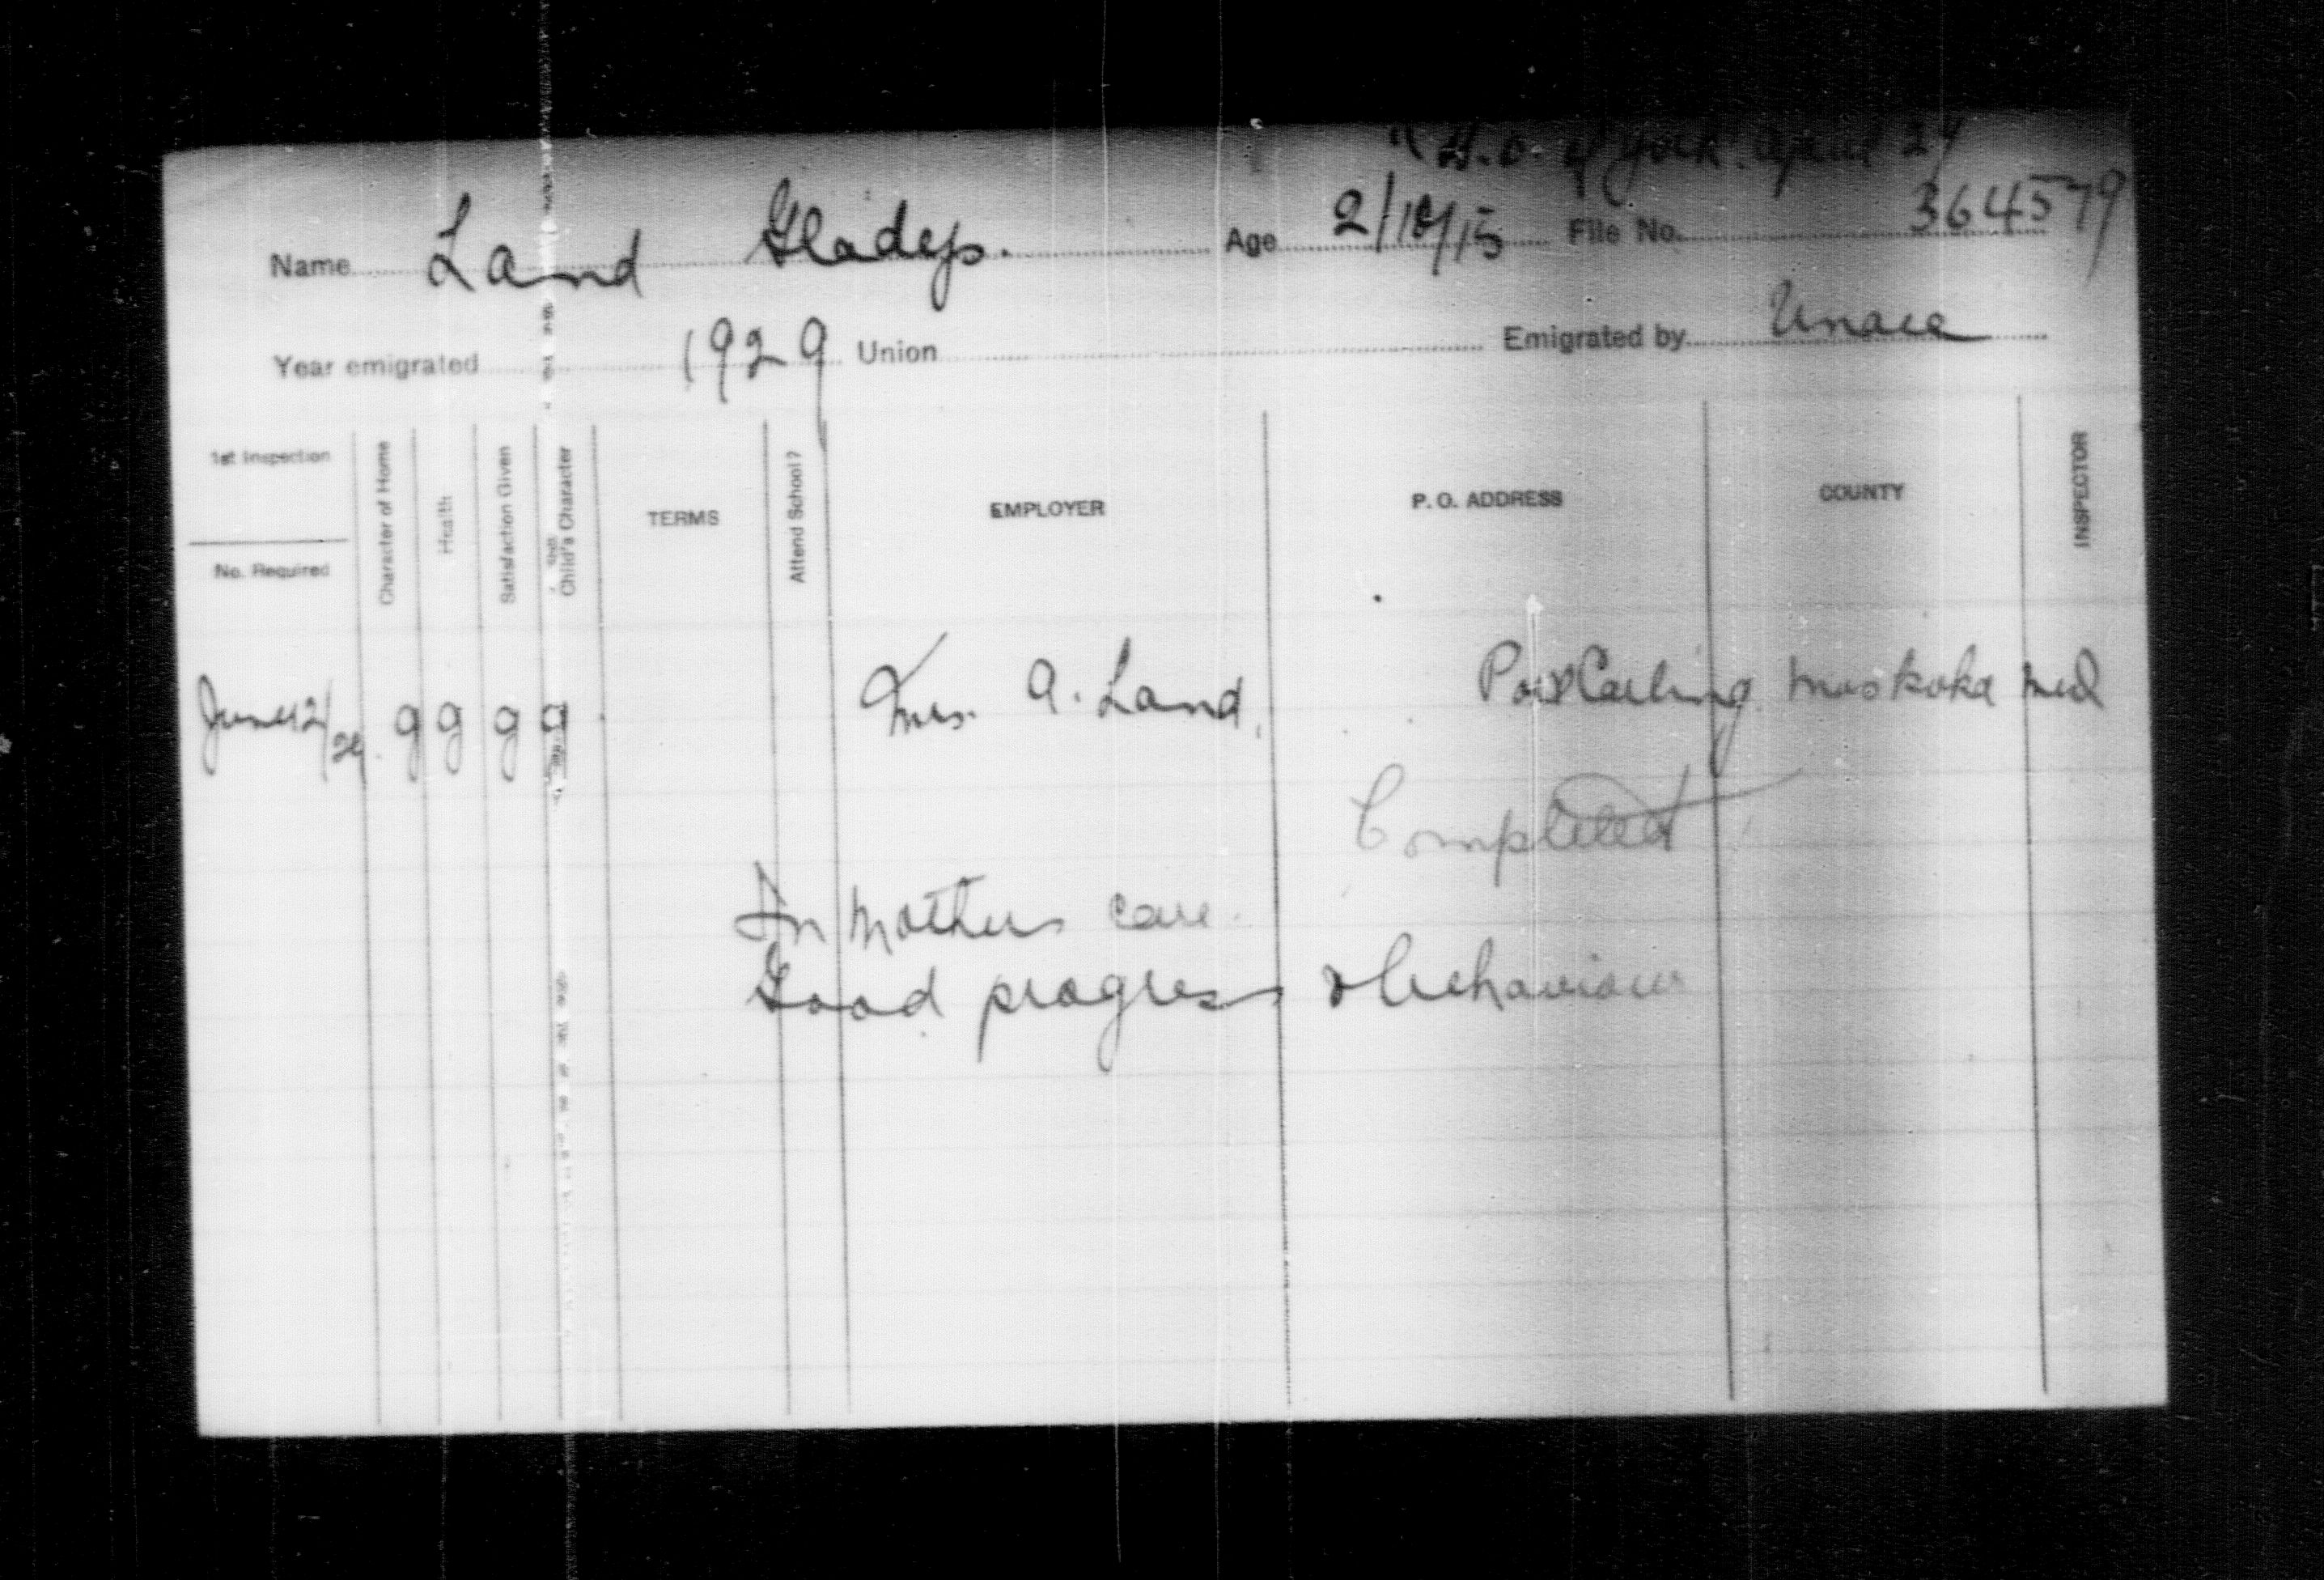 "D. of York. April 29
Name Land Gladys. Age 2/10/15 File No. 364579
Year emigrated 1929 Union Emigrated by Unacc
1st Inspection
No. Required
Character of Home
Health
Satisfaction Given
Child's Character
TERMS
Attend School?
EMPLOYER
P. O. ADDRESS
COUNTY
INSPECTOR
June 12/29. g g g g Mrs. A. Land, Port Carling Muskoka
Completed
In Mothers care.
Good progress & behaviour